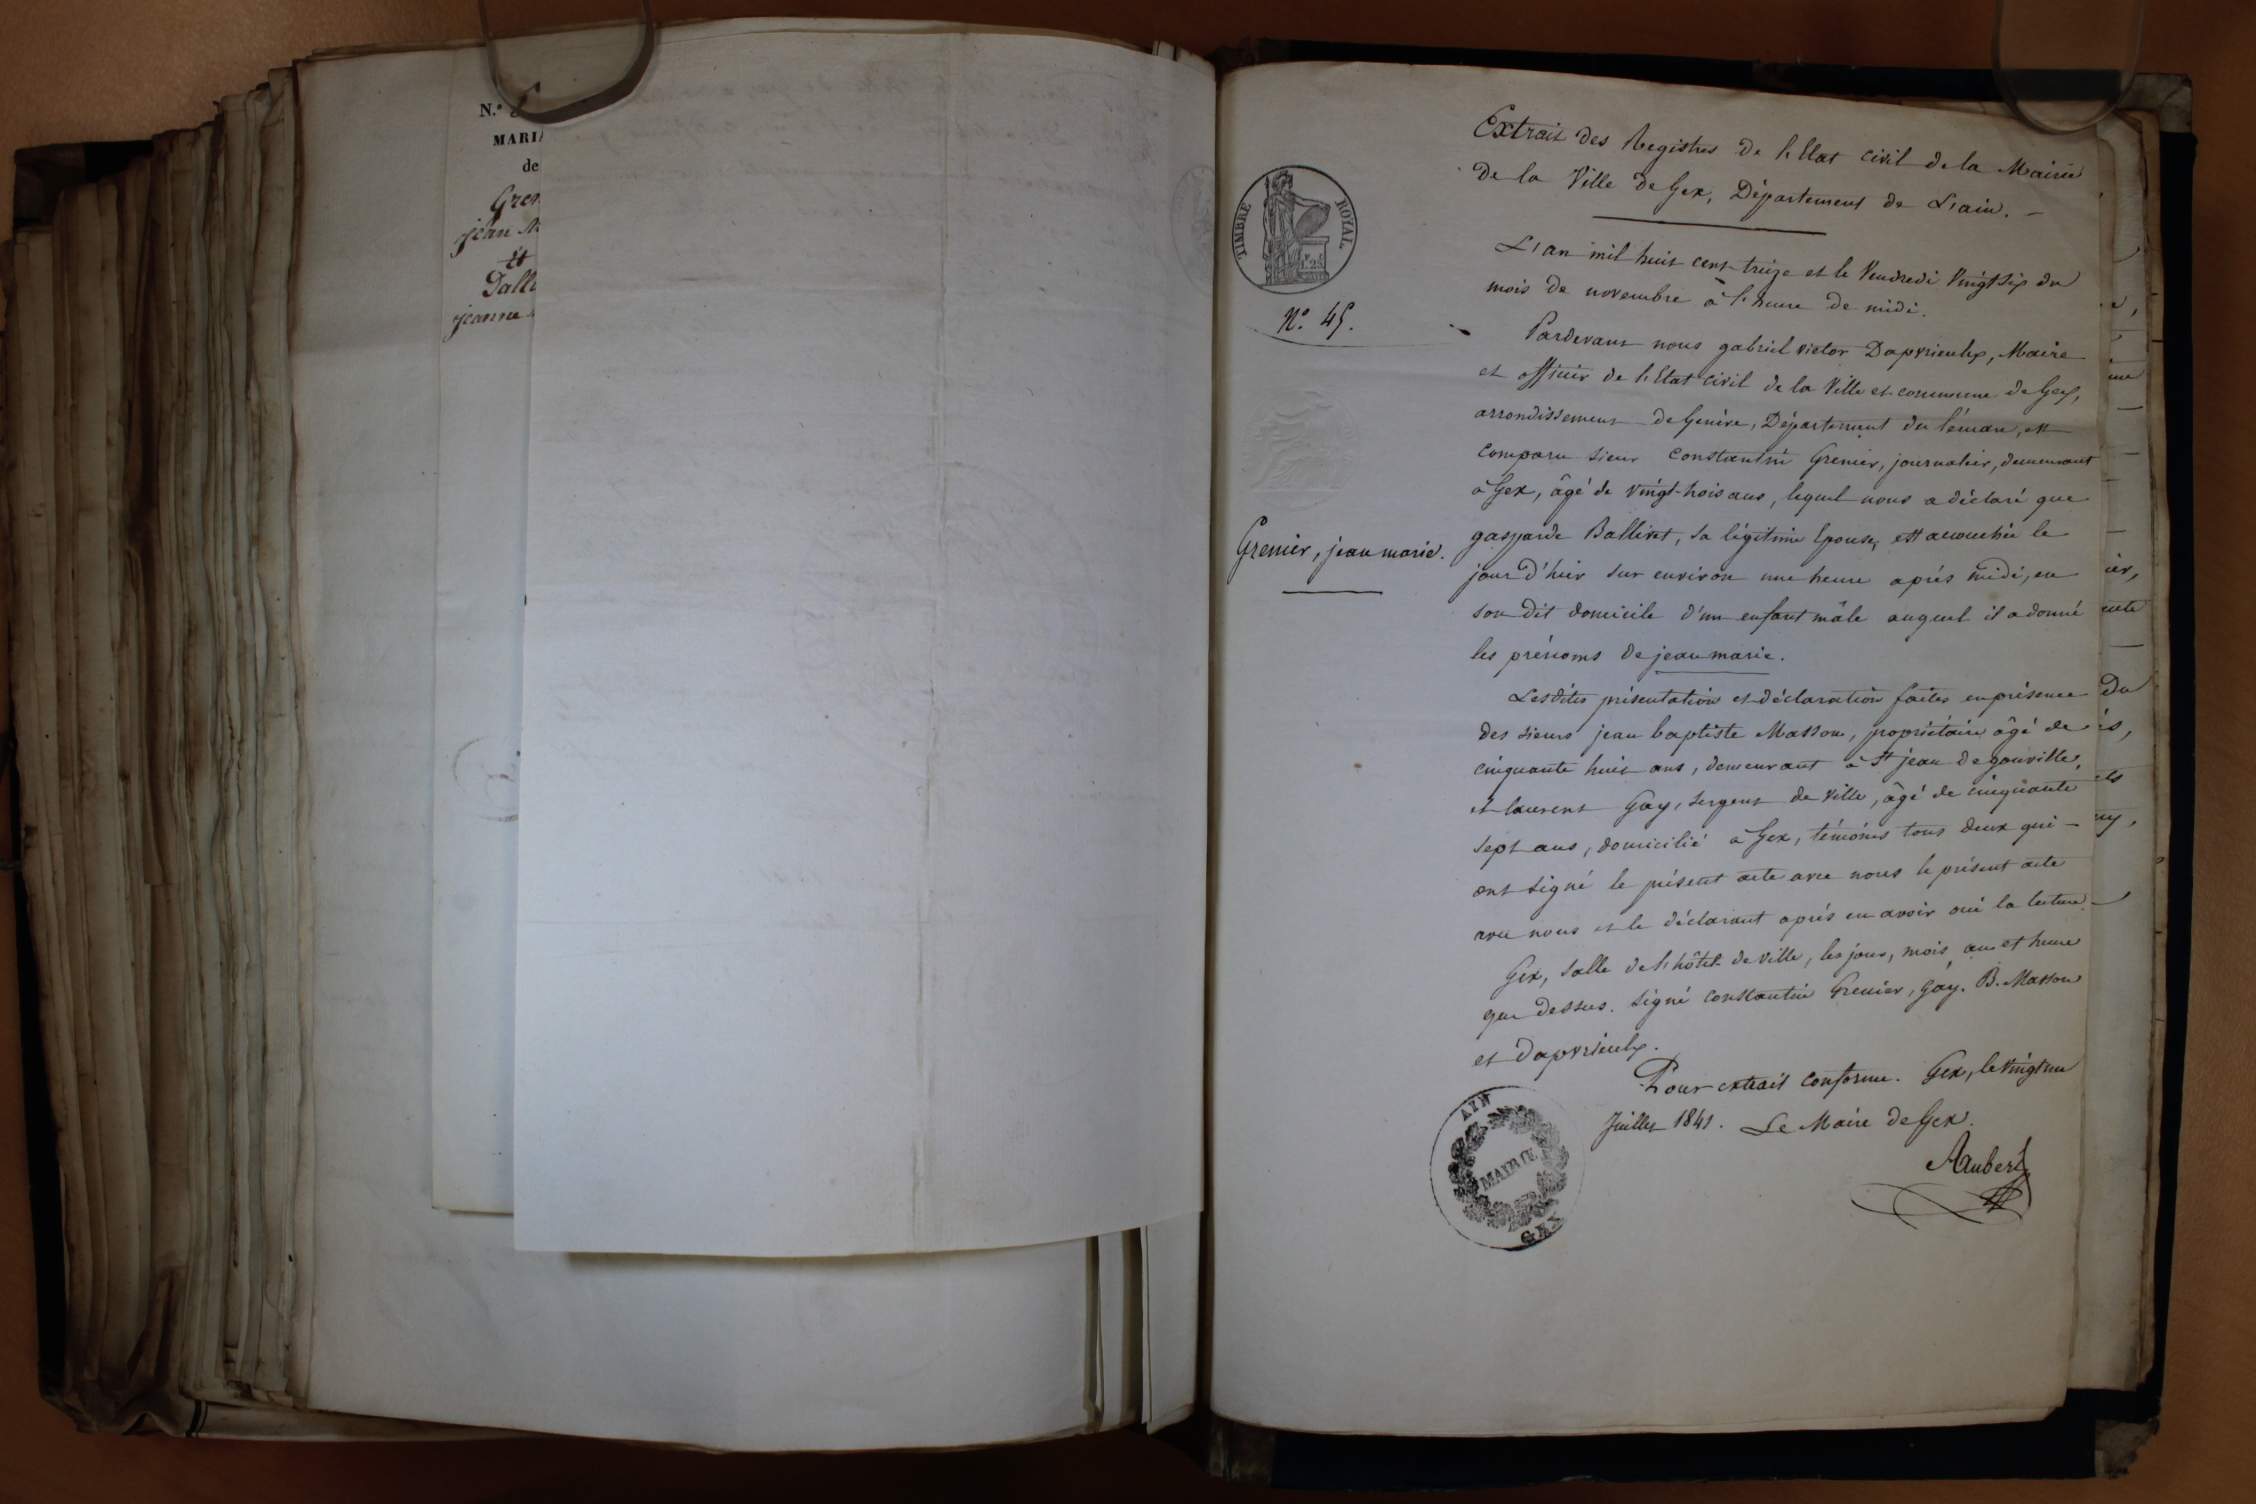 N.º
MARI
de
Gren
jean M
et
Dall
jeanne
TIMBRE ROYAL
1.25
Nº. 45.
Grenier, jean marie.
Extrait des Registres de l'Etat civil de la Mairie
de la Ville de Gex, Département de L'ain. —
L'an mil huit cent treize et le Vendredi Vingt Six du
mois de novembre à l'heure de midi.
Pardevant nous gabriel victor Dapvrieulx, Maire
et officier de l'Etat civil de la Ville et commune de Gex,
arrondissement de Genève, Département du léman, est
comparu sieur Constantin Grenier, journalier, demeurant
à Gex, âgé de vingt-trois ans, lequel nous a déclaré que
gasparde Balliret, sa légitime Epouse, est accouchée le
jour d'hier sur environ une heure après midi, en
son dit domicile d'un enfant mâle auquel il a donné
les prénoms de jean marie.
Lesdites présentation et déclaration faites en présence
des sieurs jean baptiste Masson, propriétaire âgé de
cinquante huit ans, demeurant à St jean de gonville,
et laurent Gay, sergent de ville, âgé de cinquante
sept ans, domicilié à Gex, témoins tous deux qui —
ont signé le présent acte avec nous le présent acte
avec nous et le déclarant après en avoir oui la lecture.
Gex, salle de l'hôtel de ville, les jour, mois, an et heure
que dessus. signé constantin Grenier, Gay. B. Masson
et Dapvrieulx.
Pour extrait conforme. Gex, le vingt un
Juillet 1841. Le Maire de Gex.
Aubert
AIN
MAIRIE
GEX
me
ier,
ente
Du
és,
ets